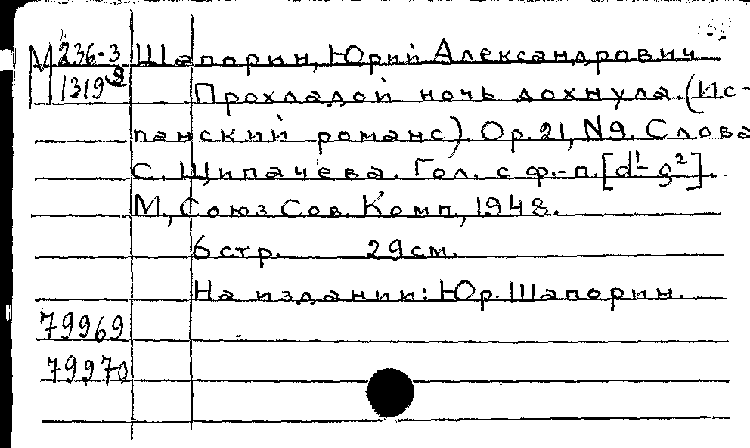 М 236-3 Шапорин, Юрий Александрович
1319 Прохладой ночь дохнула. (Ис-
панский романс). Ор. 21, N9. Слова
С. Щипачёва. Гол. с ф.-п. [d¹-g²].
М., Союз Сов. Комп., 1948.
6 стр. 29 см.
На издании: Юр. Шапорин.
79969
79970